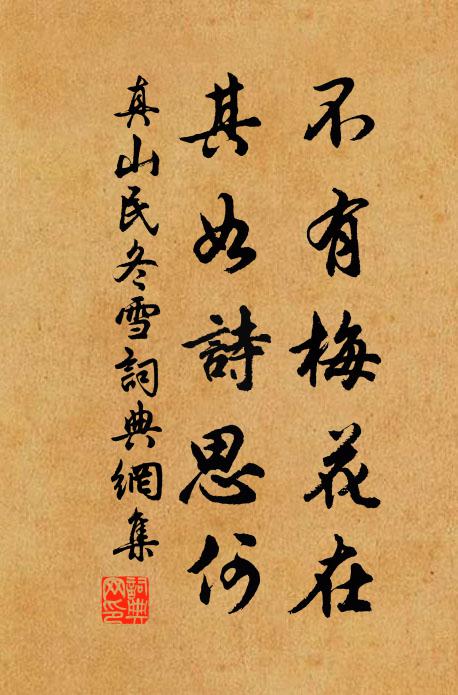 不有梅花在
其如詩思何
真山民冬雪詞典網集
詞典網印